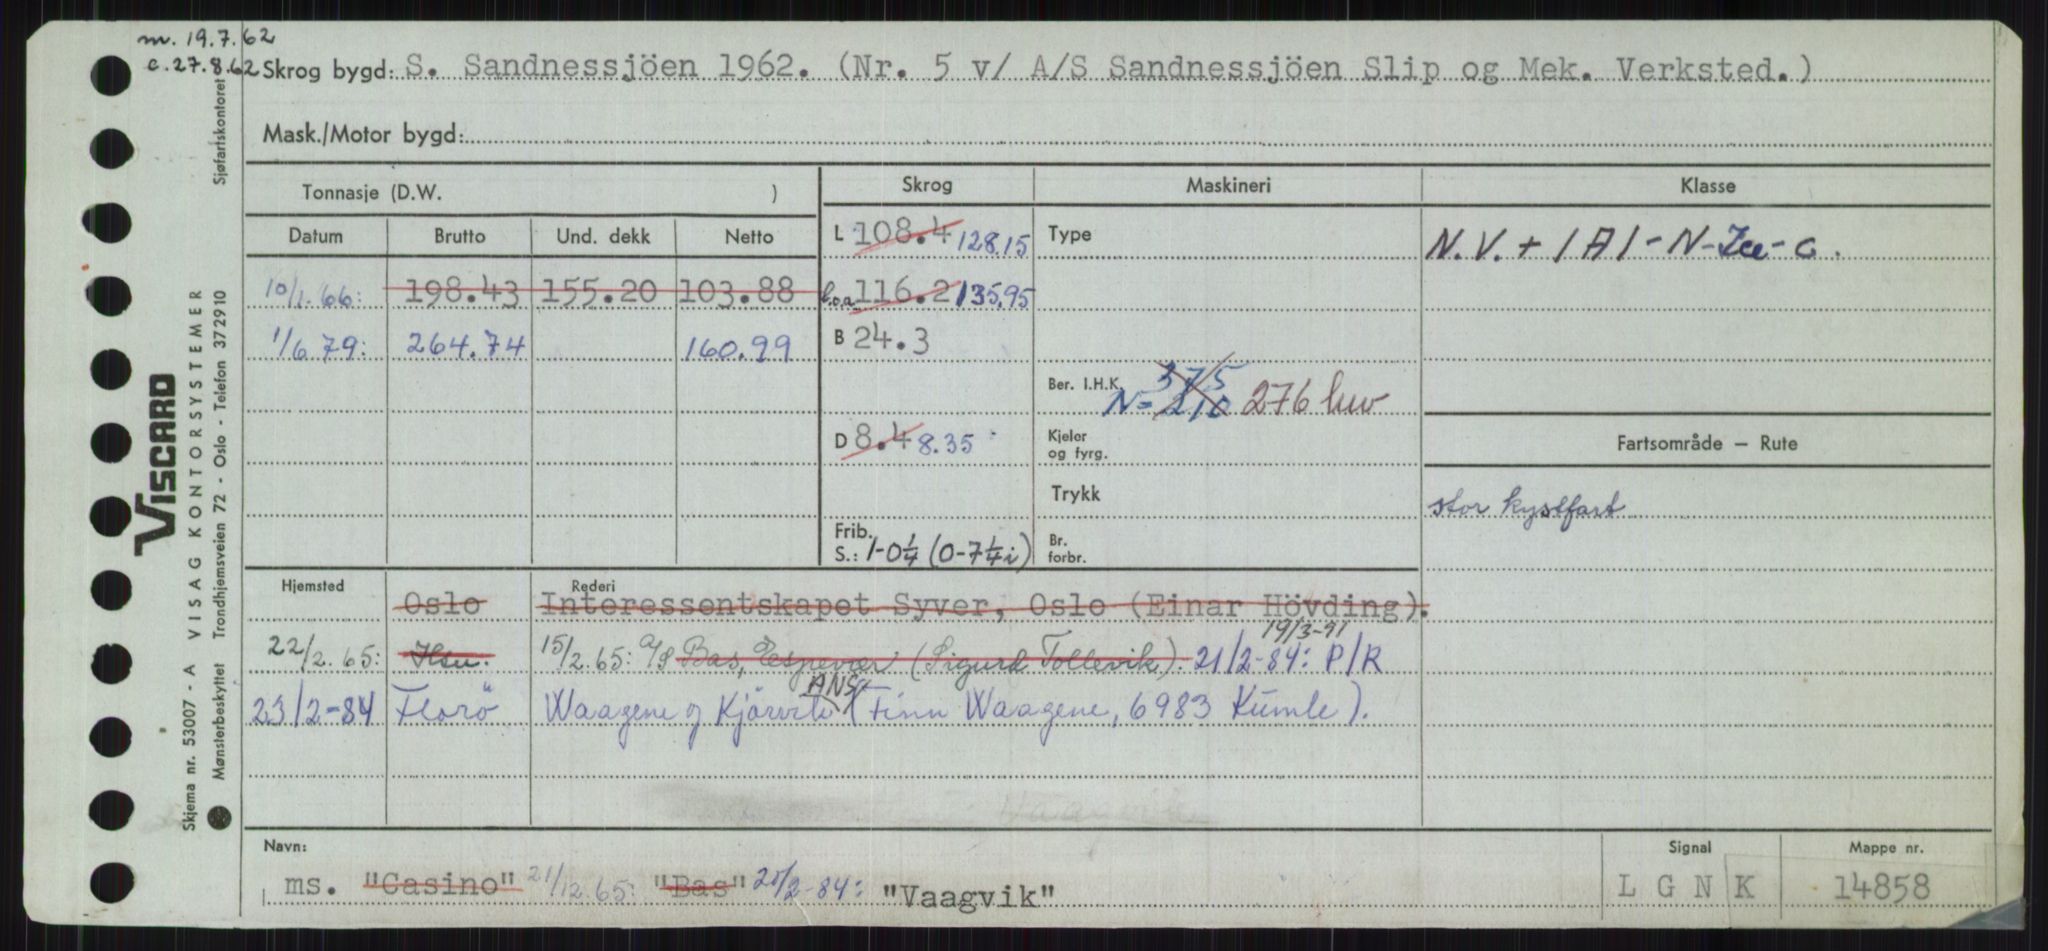 m. 19.7.62
c. 27.8.62
Skrog bygd: S. Sandnessjöen 1962. (Nr. 5 v/ A/S Sandnessjöen Slip og Mek. Verksted.)
Mask./Motor bygd:
Tonnasje (D.W. )
Skrog Maskineri Klasse
Datum Brutto Und. dekk Netto
L 108.4 128.15 Type N.V. + 1A1-N-Ice-C.
10/1.66: 198.43 155.20 103.88 l.o.a 116.2 135.95
1/6 79: 264.74 160.99 B 24.3
Ber. I.H.K. 375
N= 210 276 kw
D 8.4 8.35 Kjeler
og fyrg.
Fartsområde — Rute
Trykk stor kystfart
Frib.
S.: 1-0¼ (0-7¼i) Br.
forbr.
Hjemsted Rederi
Oslo Interessentskapet Syver, Oslo (Einar Hövding).
19/3-91
22/2.65: 15/2.65: A/S Bas, Espevær (Sigurd Tollevik). 21/2-84: P/R
ANS
23/2-84 Florö Waagene og (Finn Waagene, 6983 Kumle).
Navn: Signal Mappe nr.
ms. "Casino" 21/12.65: "Bas" 20/2-84: "Vaagvik" L G N K 14858
VISCARD
VISAG KONTORSYSTEMER
Skjema nr. 53007 - A
Mønsterbeskyttet Trondhjemsveien 72 - Oslo - Telefon 372910 Sjøfartskontoret